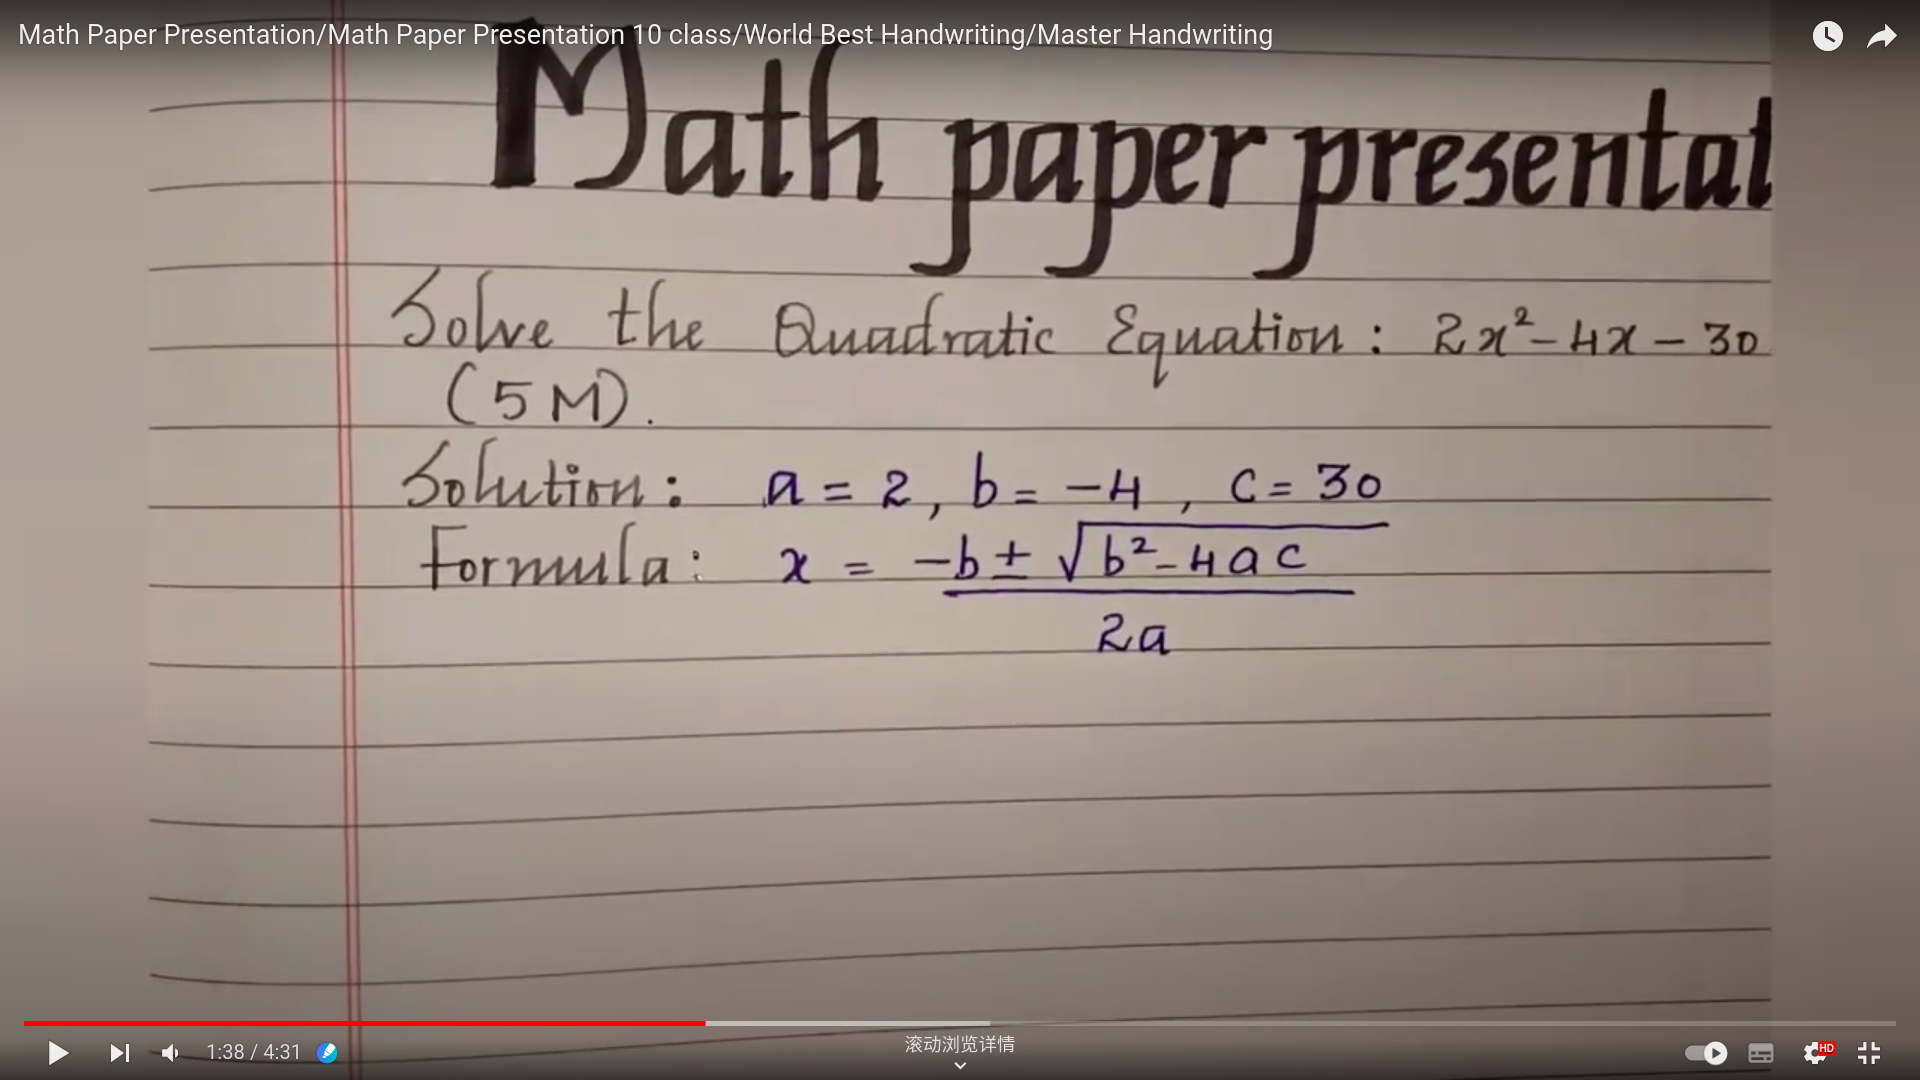 Math Paper Presentation/Math Paper Presentation 10 class/World Best Handwriting/Master Handwriting
Math paper presentat
Solve the Quadratic Equation : 2x² - 4x - 30
(5M).
Solution : a = 2, b = -4, c = 30
Formula : x = -b ± √b² - 4ac
2a
1:38 / 4:31
HD
滚动浏览详情